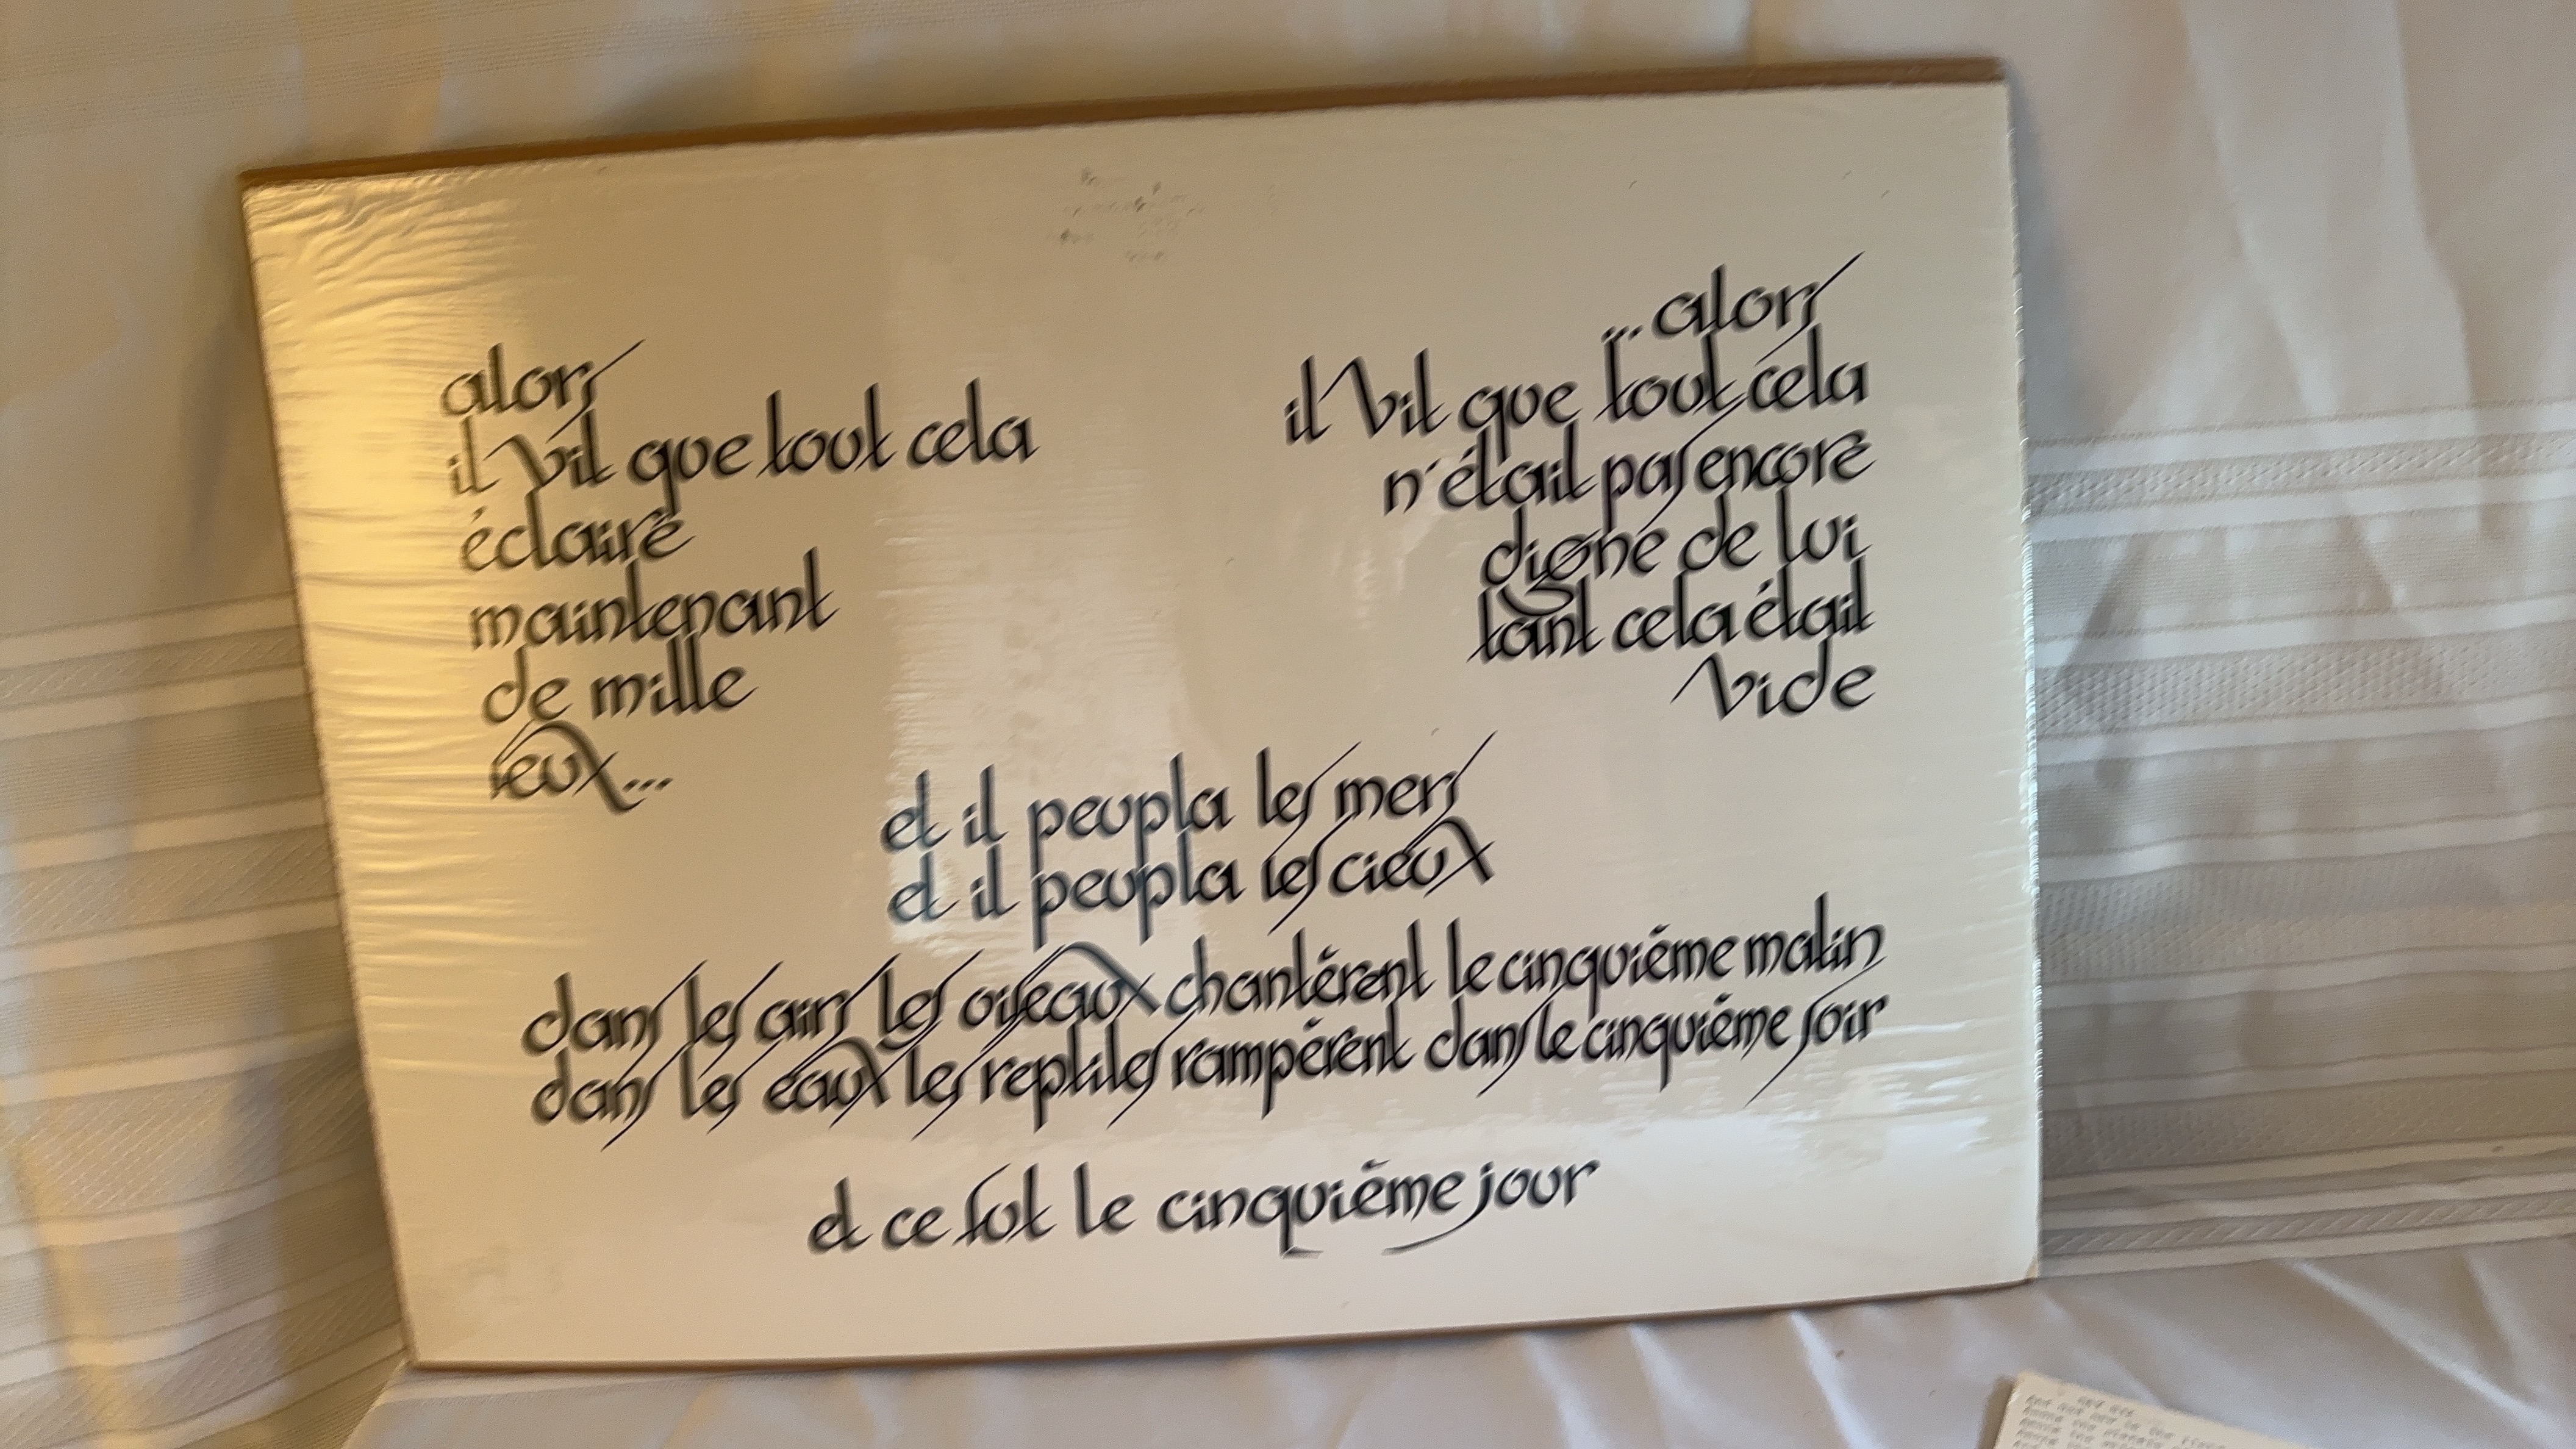 alors
il vit que tout cela
éclairé
maintenant
de mille
feux...
...alors
il vit que tout cela
n'était pas encore
digne de lui
tant cela était
vide
et il peupla les mers
et il peupla les cieux
dans les airs les oiseaux chantérent le cinquiéme matin
dans les eaux les reptiles rampérent dans le cinquiéme soir
et ce fut le cinquiéme jour